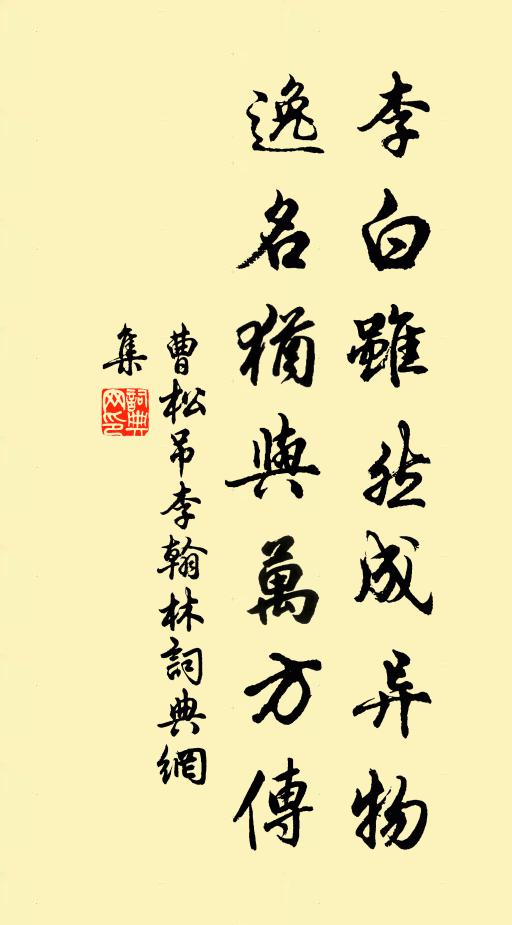 李白雖然成异物
逸名猶與萬方傳
曹松吊李翰林詞典網
集
詞典
网印